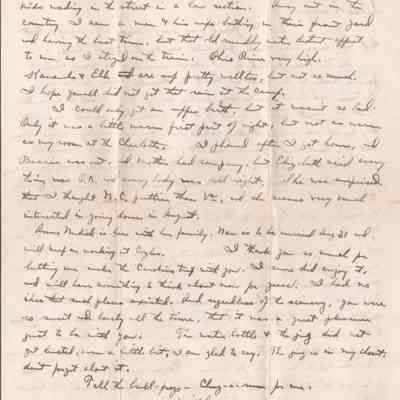 kids wading in the street in a low section. Away out in the
country I saw a man & his wife bathing in their front yard
and having the best time, but that old muddy water didn't appeal
to me, so I stayed on the train. Ohio River very high.
Kanawha & Elk are up pretty well too, but not so much.
I hope you all did not get that rain at the camp.
I could only get an upper berth, but it wasn't so bad.
Only it was a little warm first part of night, but not as warm
as my room at the Charlotte. I phoned after I got home, and
was out and mother had company, but Elizabeth said every
thing was O.K. and every body was all right. She was surprised
that I thought N.C. prettier than Va. and she seems very much
interested in going down in August.
Anna is here with her family. is to be married Aug 31 and
will keep on working at I thank you so much for
letting me make the Carolina trip with you. I sure did enjoy it,
and will have something to think about now for years. I had no
idea that such places existed. And regardless of the scenery, you were
so sweet and lovely all the time, that it was a great pleasure
just to be with you. The water bottle & the jug did not
get busted, even a little bit, I am glad to say. The jug is in my closet,
don't forget about it.
Tell the bull-pups - Chug-a-rum for me.